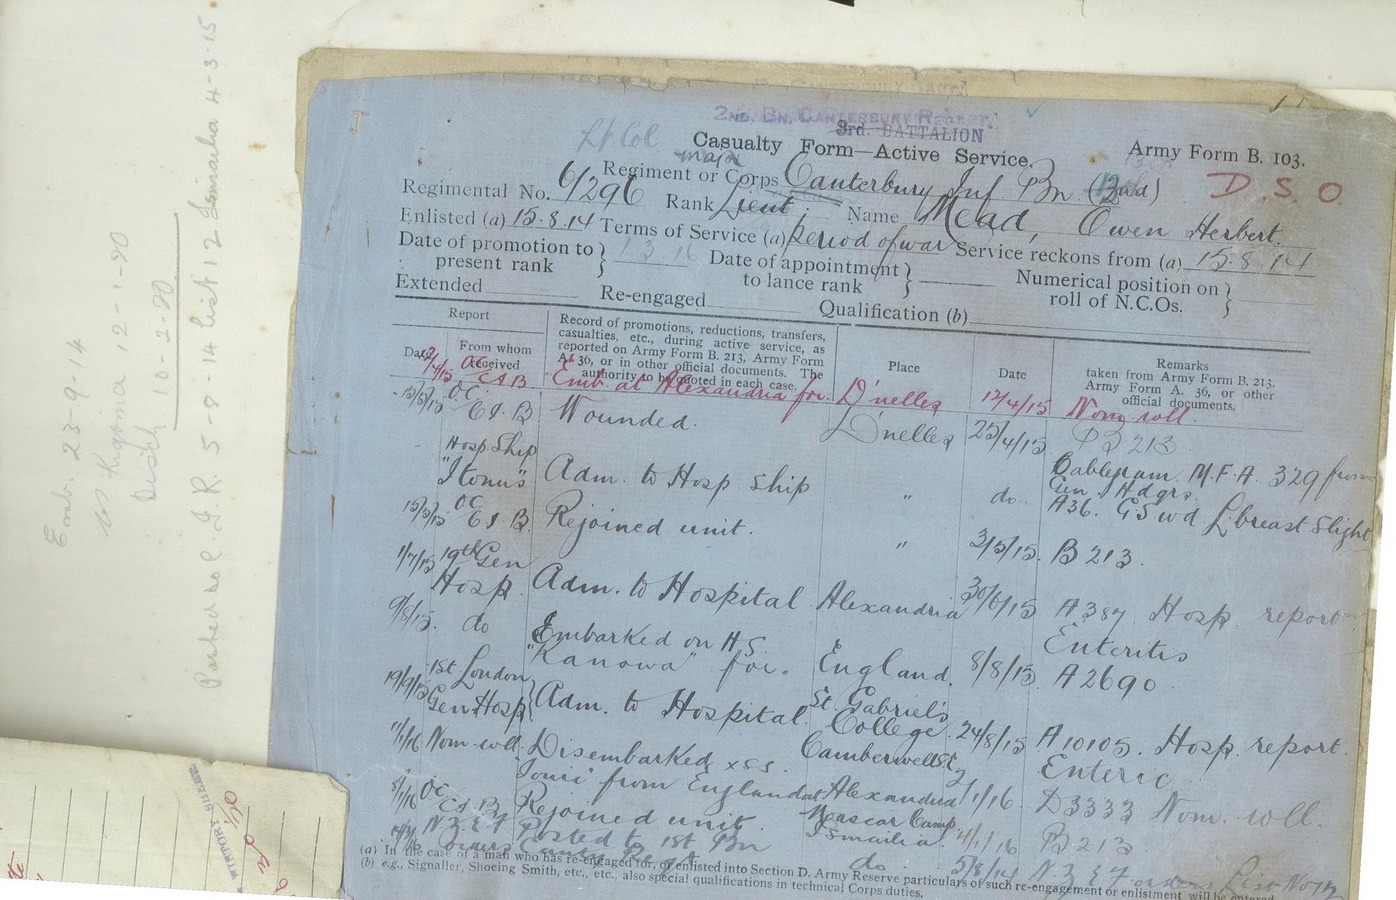 Emb. 23-9-14
ss Kigoma 12-1-20
Disch 10-2-20
Posted to C.I.R. 5-8-14 List 12 Ismailia 4-3-15
2ND. BN. CANTERBURY REGT.
3rd. BATTALION
Lt Col
Casualty Form—Active Service.
Army Form B. 103.
Major
Regiment or Corps Canterbury Inf Bn
D. S. O.
Regimental No. 6/296 Rank Lieut; Name Mead, Owen Herbert.
Enlisted (a) 15.8.14 Terms of Service (a) period of war Service reckons from (a) 15.8.14
Date of promotion to present rank } 1 3. 16 Date of appointment to lance rank } Numerical position on roll of N.C.Os. }
Extended Re-engaged Qualification (b)
Report
Date From whom received
Record of promotions, reductions, transfers,
casualties, etc., during active service, as
reported on Army Form B. 213, Army Form
A. 36, or in other official documents. The
authority to be quoted in each case.
Place
Date
Remarks
taken from Army Form B. 213,
Army Form A. 36, or other
official documents.
12/4/15 OC C I B Emb. at Alexandria for D'nelles 12/4/15 Nom roll.
15/5/15 O.C. C I B Wounded. D'nelles 25/4/15 B 213
Hosp Ship "Itonus" Adm. to Hosp Ship " do. Cablegram M.F.A. 329 from
Gen Hdqrs.
A36. GSwd L breast Slight
15/5/15 OC C I B Rejoined unit. " 3/5/15. B 213.
1/7/15 19th Gen Hosp. Adm. to Hospital Alexandria 30/6/15 A 387 Hosp. report
Enteritis
9/8/15. do Embarked on H.S.
"Kanowa" for England. 8/8/15. A 2690
19/9/15 1st London Gen Hosp. Adm. to Hospital. St. Gabriel's
College
Camberwell 24/8/15 A10105. Hosp. report.
Enteric
11/1/16 Nom roll. Disembarked
from England at Alexandria 2/1/16 D3333 Nom. roll.
8/1/16 OC C I B Rejoined unit. Moascar Camp
Ismailia. 4/1/16 B 213
N.Z.E.F orders Posted to 1st Bn
do 5/8/14 N.Z.E.F orders List No 12
(a) In the case of a man who has re-engaged for, or enlisted into Section D. Army Reserve particulars of such re-engagement or enlistment will be entered
(b) e.g., Signaller, Shoeing Smith, etc., etc., also special qualifications in technical Corps duties.
HISTORY SHEET